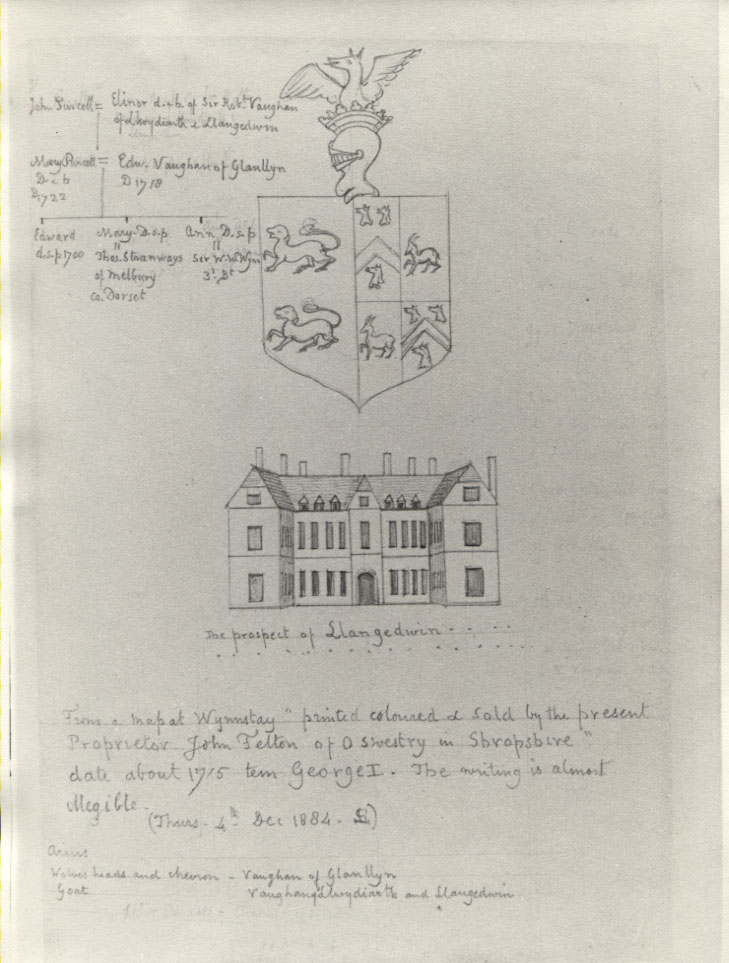 John Purcell = Elinor d. & h. of Sir Robt. Vaughan
of Llwydiarth & Llangedwin
Mary Purcell = Edw. Vaughan of Glanllyn
D & h D 1718
D 1722
Edward Mary D.s.p Ann D.s.p
d.s.p 1700 " "
Thos. Strangways Sir W. W. Wynn
of Melbury 3d. Bt
co. Dorset
The prospect of Llangedwin
From a map at Wynnstay " printed coloured & sold by the present
Proprietor John Felton of Oswestry in Shropshire "
date about 1715 tem George I. The writing is almost
illegible.
(Thurs. 4th Dec 1884.
Arms
Wolves heads and chevron - Vaughan of Glanllyn
Goat Vaughan of Llwydiarth and Llangedwin